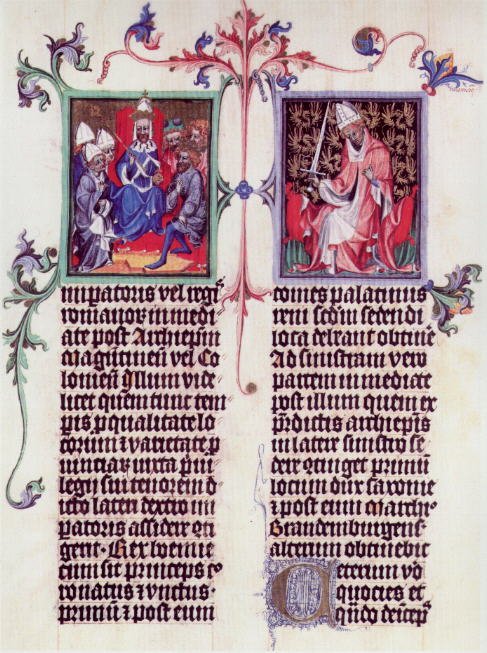 imꝑatoris vel regꝭ
romanoꝝ in medi
ate post Archiepm̄
Magūtinen̄ vel Co
lonien̄ Illum vide
licet quem tunc tem
pis pqualitate lo
corum ⁊ varietate p
uinciaꝝ iuxta priui
legij sui tenorem di
cto lateri dextro im
patoris assidere cōti
gerit. Rex boemie
cum sit princeps co
ronatus ⁊ vnctus
primū ⁊ post eum
comes palatinus
reni scdm sedendi
loca debeant obtinē
Ad sinistram vero
partem in mediate
post illum quem ex
pr̄dictis archiepīs
in latere sinistro se
dere cōtiget primū
locum dux saxonie
⁊ post eum marchio
Brandemburgenſ
alterum obtinebit
Ceterum vo
quocies et
qn̄do deīcep